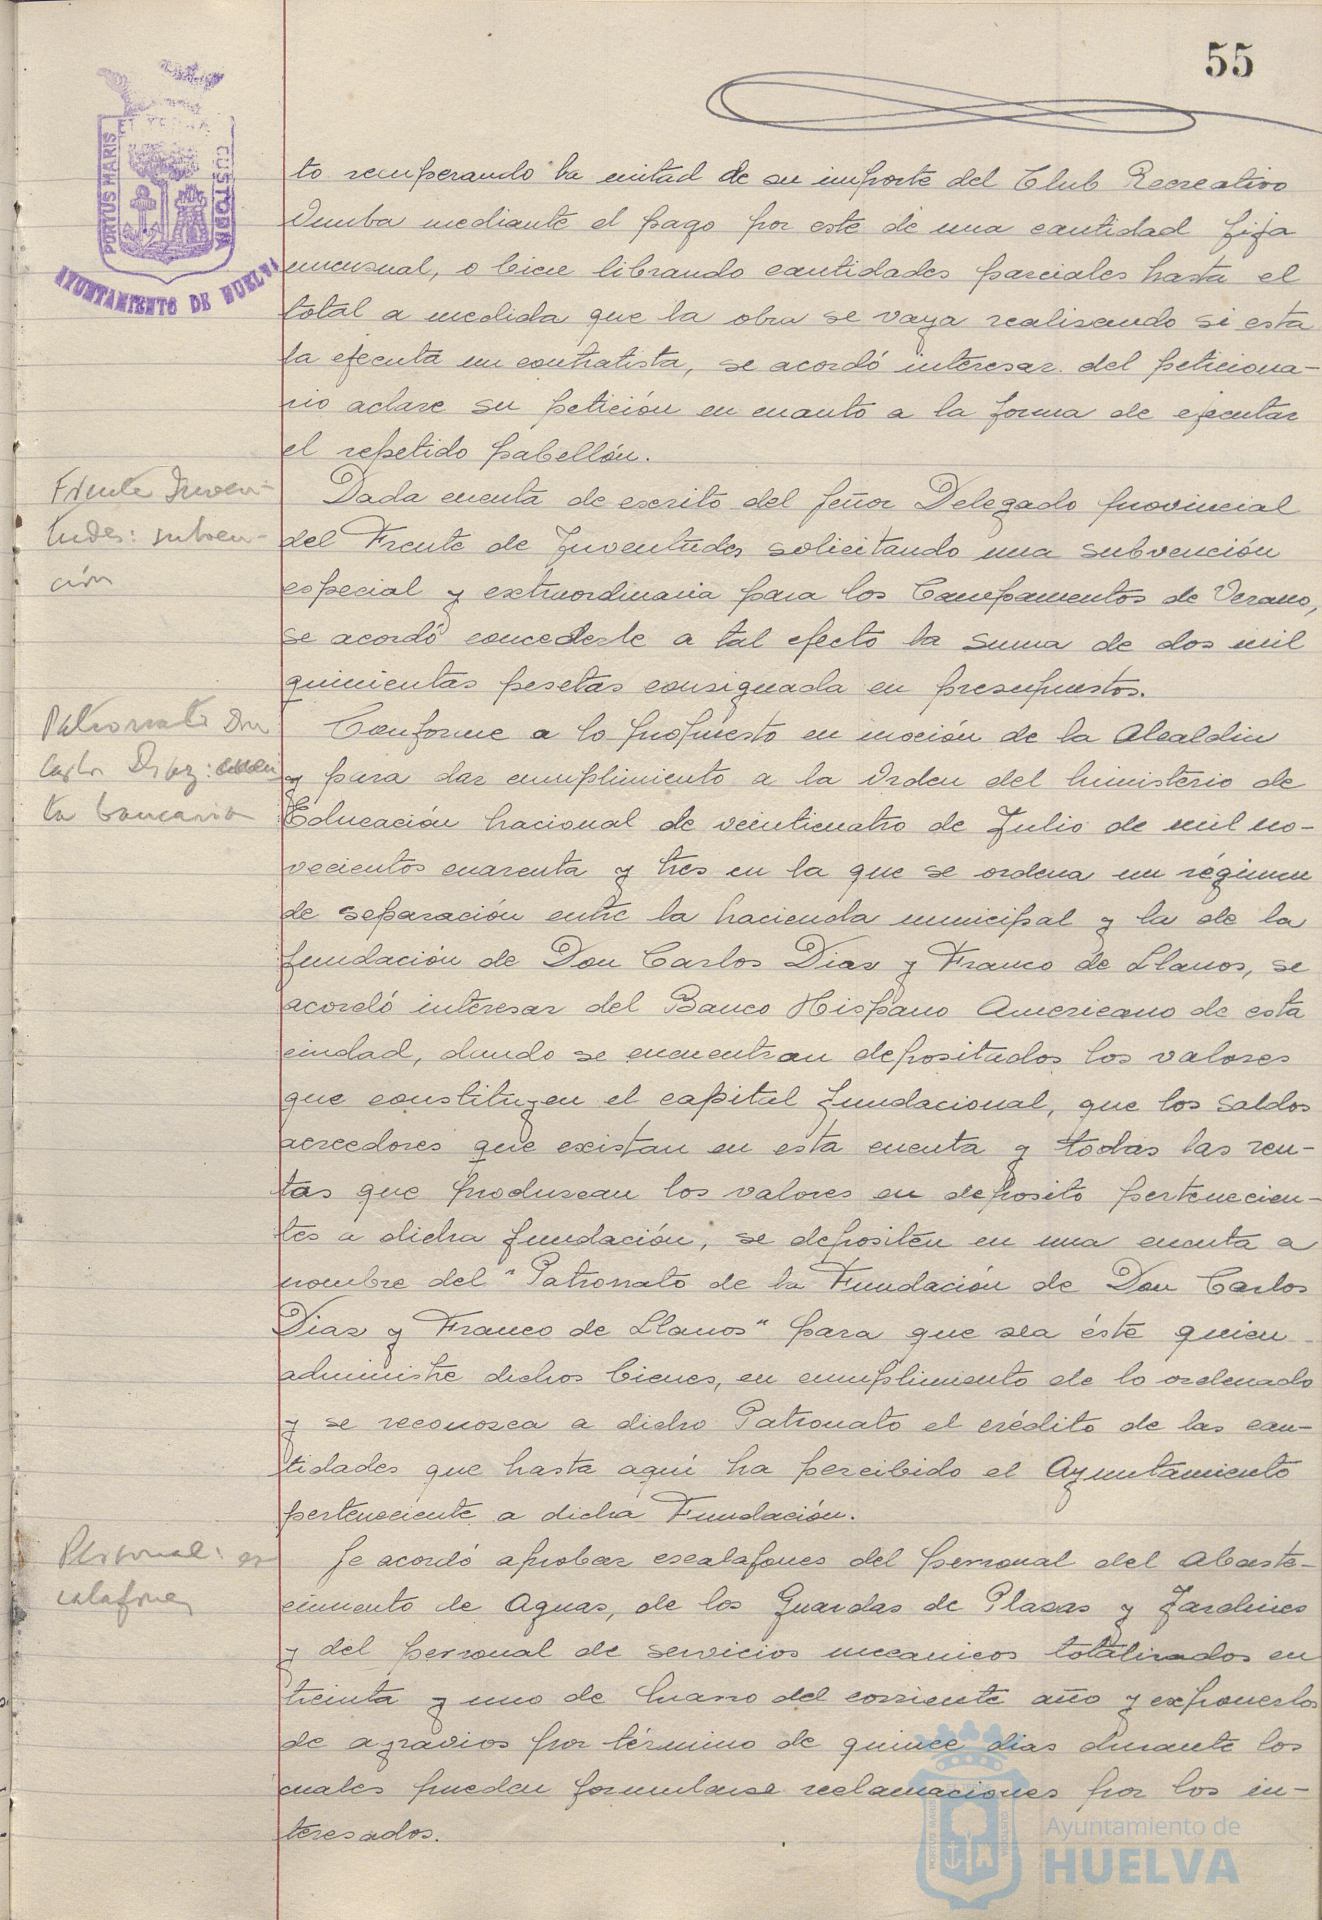 55
PORTUS MARIS
ET TERRAE
CUSTODIA
AYUNTAMIENTO DE HUELVA
to recuperando la mitad de su importe del Club Recreativo
Onuba mediante el pago por este de una cantidad fija
mensual, o bien librando cantidades parciales hasta el
total a medida que la obra se vaya realizando si esta
la ejecuta un contratista, se acordó interesar del peticiona-
rio aclare su petición en cuanto a la forma de ejecutar
el repetido pabellón.
Frente Juven-
tudes: subven-
ción
Dada cuenta de escrito del Señor Delegado provincial
del Frente de Juventudes solicitando una subvención
especial y extraordinaria para los Campamentos de Verano,
se acordó concederle a tal efecto la suma de dos mil
quinientas pesetas consignada en presupuestos.
Patronato Don
Carlos Diaz: cuen
ta bancaria
Conforme a lo propuesto en moción de la Alcaldia
y para dar cumplimiento a la Orden del Ministerio de
Educación Nacional de veinticuatro de Julio de mil no-
vecientos cuarenta y tres en la que se ordena un régimen
de separación entre la hacienda municipal y la de la
fundación de Don Carlos Dias y Franco de Llanos, se
acordó interesar del Banco Hispano Americano de esta
ciudad, donde se encuentran depositados los valores
que constituyen el capital fundacional, que los saldos
acreedores que existan en esta cuenta y todas las ren-
tas que produscan los valores en deposito pertenecien-
tes a dicha fundación, se depositen en una cuenta a
nombre del "Patronato de la Fundación de Don Carlos
Dias y Franco de Llanos" para que sea éste quien
administre dichos bienes, en cumplimiento de lo ordenado
y se reconosca a dicho Patronato el crédito de las can-
tidades que hasta aquí ha percibido el Ayuntamiento
perteneciente a dicha Fundación.
Personal: es
calafones
Se acordó aprobar escalafones del personal del Abaste-
cimiento de Aguas, de los Guardas de Plasas y Jardines
y del personal de servicios mecanicos totalizados en
treinta y uno de Marso del corriente año y exponerlos
de agravios por término de quince dias durante los
cuales pueden formularse reclamaciones por los in-
teresados.
PORTUS MARIS
CUSTODIA
Ayuntamiento de
HUELVA